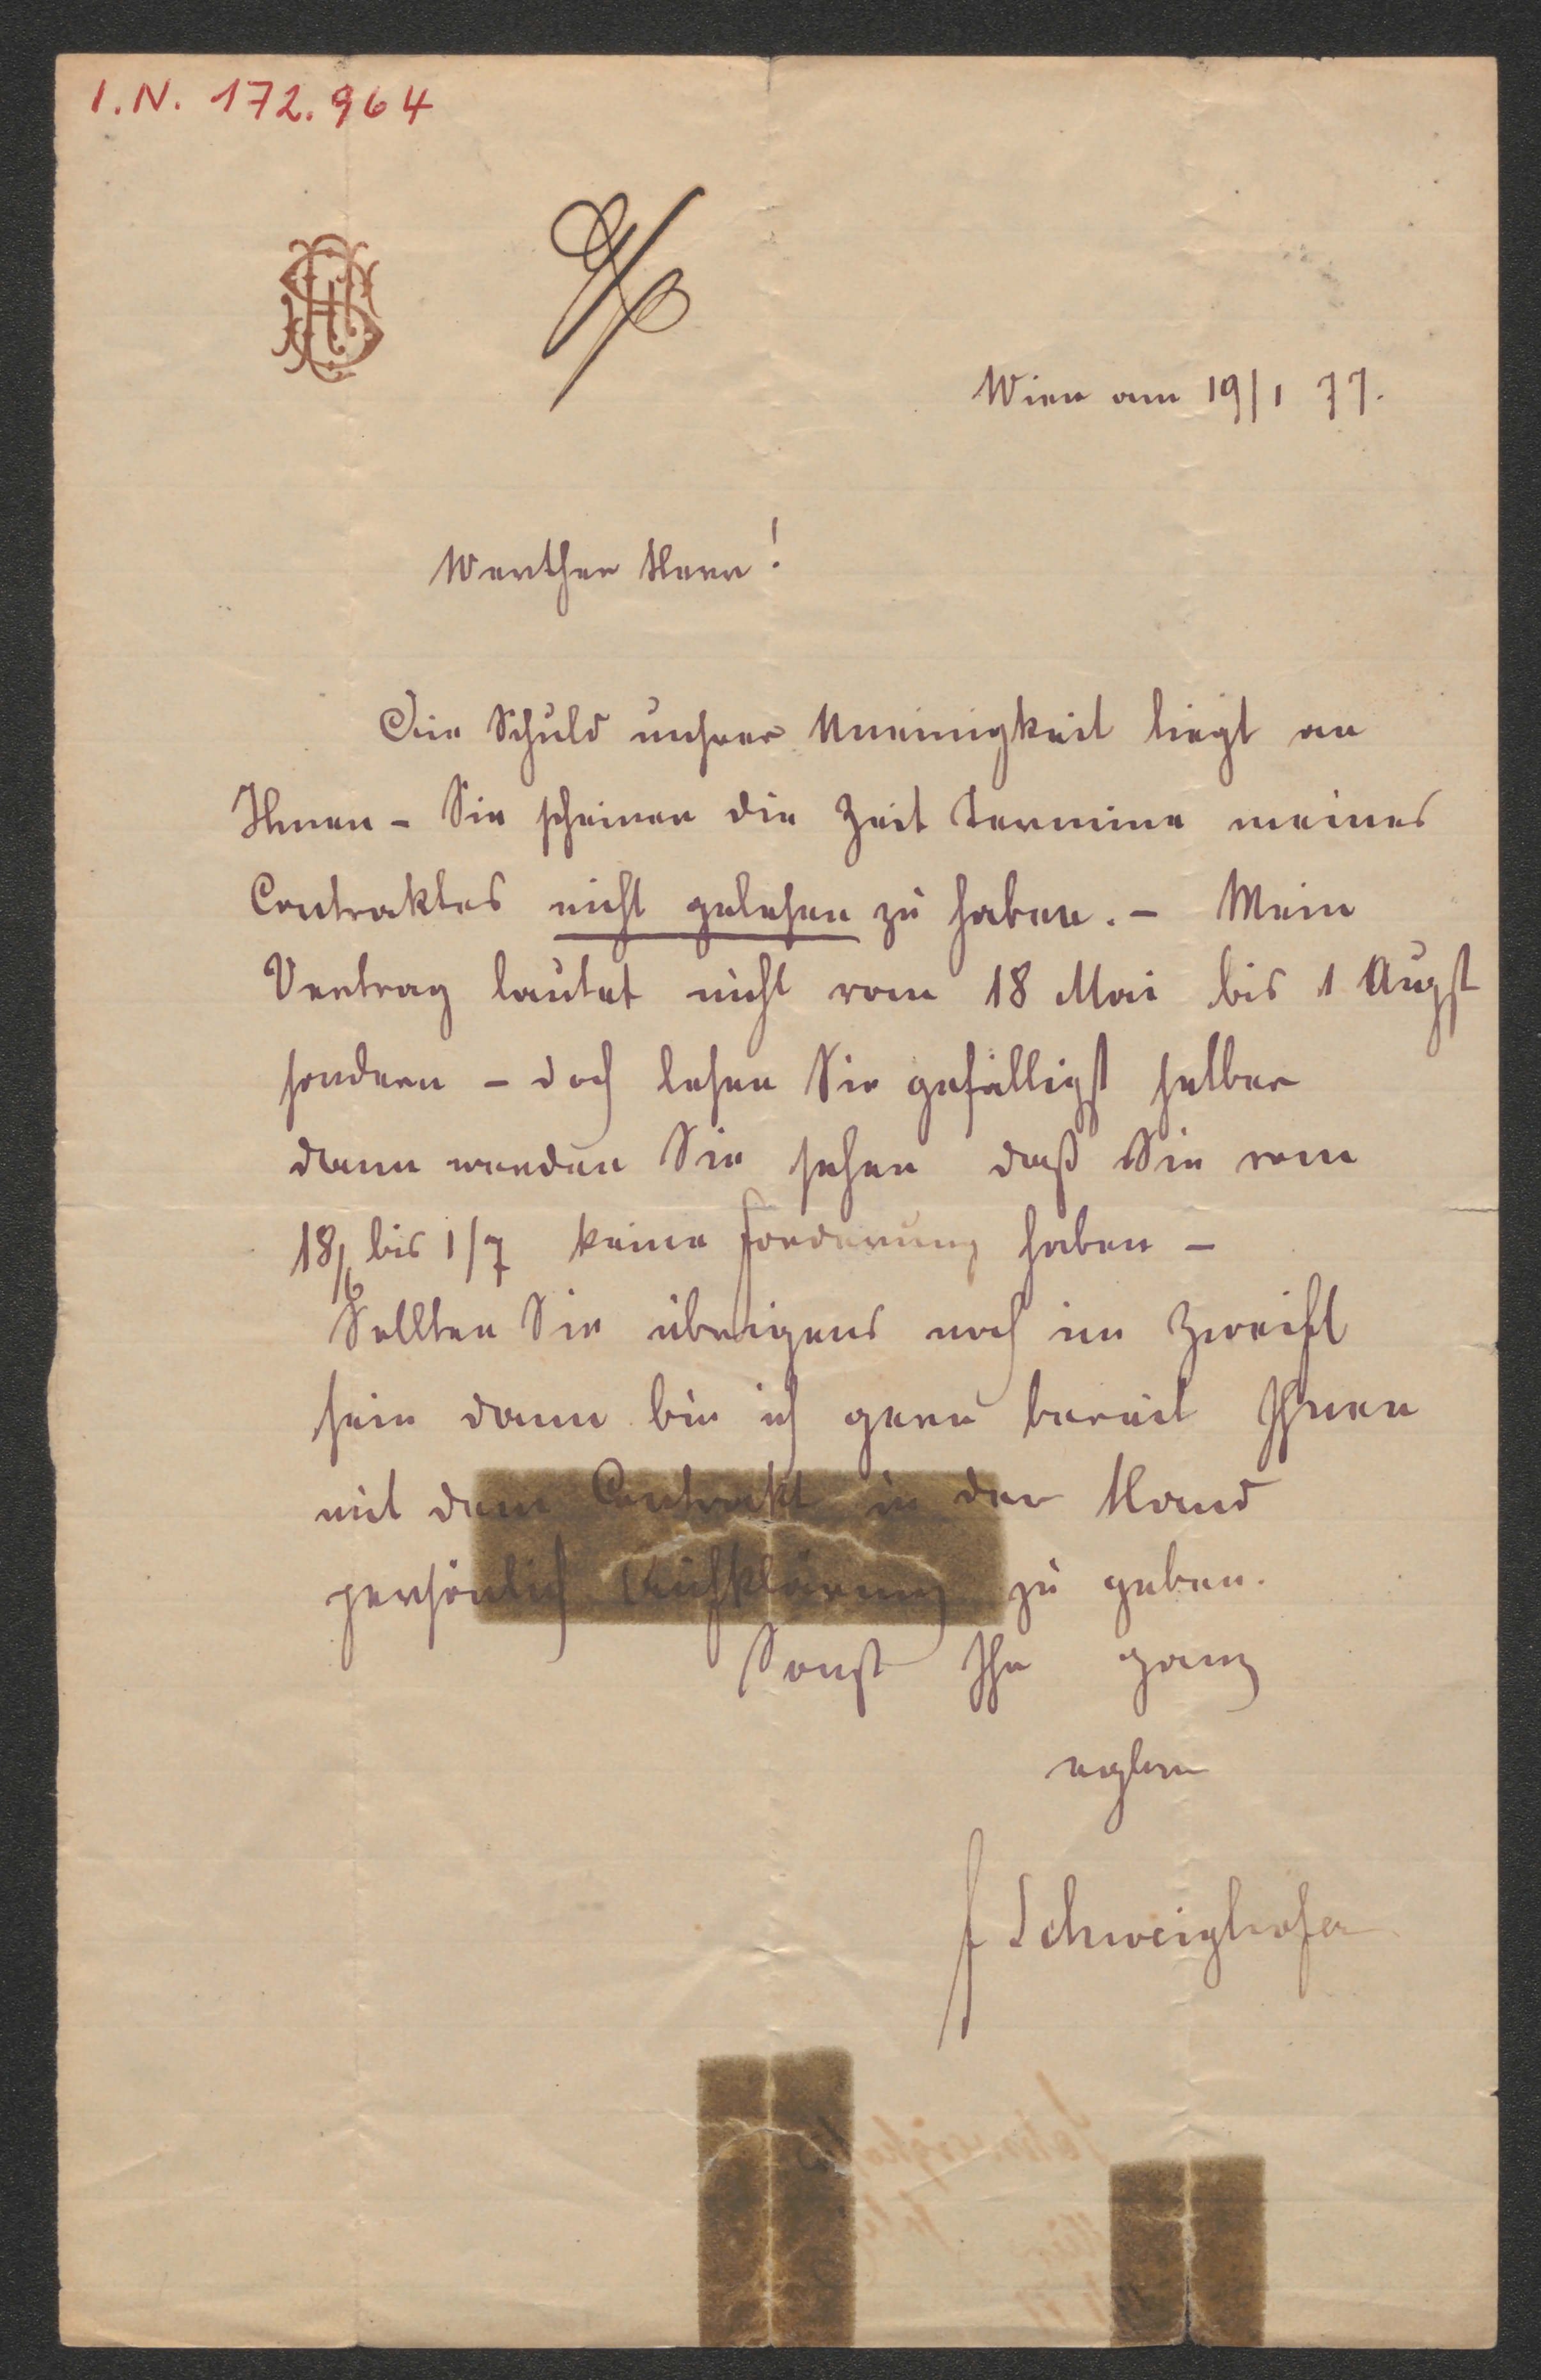 I.N. 172.964
Wien am 19/1 77.
Werther Herr!
Die Schuld unsrer Uneinigkeit liegt an
Ihnen - Sie scheinen die Zeit Termine meines
Contraktes nicht gelesen zu haben. - Mein
Vertrag lautet nicht vom 18 Mai bis 1 Augst
sondern - doch lesen Sie gefälligst selber
dann werden Sie sehen daß Sie vom
18/6 bis 1/7 keine Forderung haben -
Sollten Sie übrigens noch im Zweifel
sein dann bin ich gern bereit Ihnen
mit dem Contrakt in der Hand
persönlich Aufklärung zu geben.
Sonst Ihr ganz
F Schweighofer